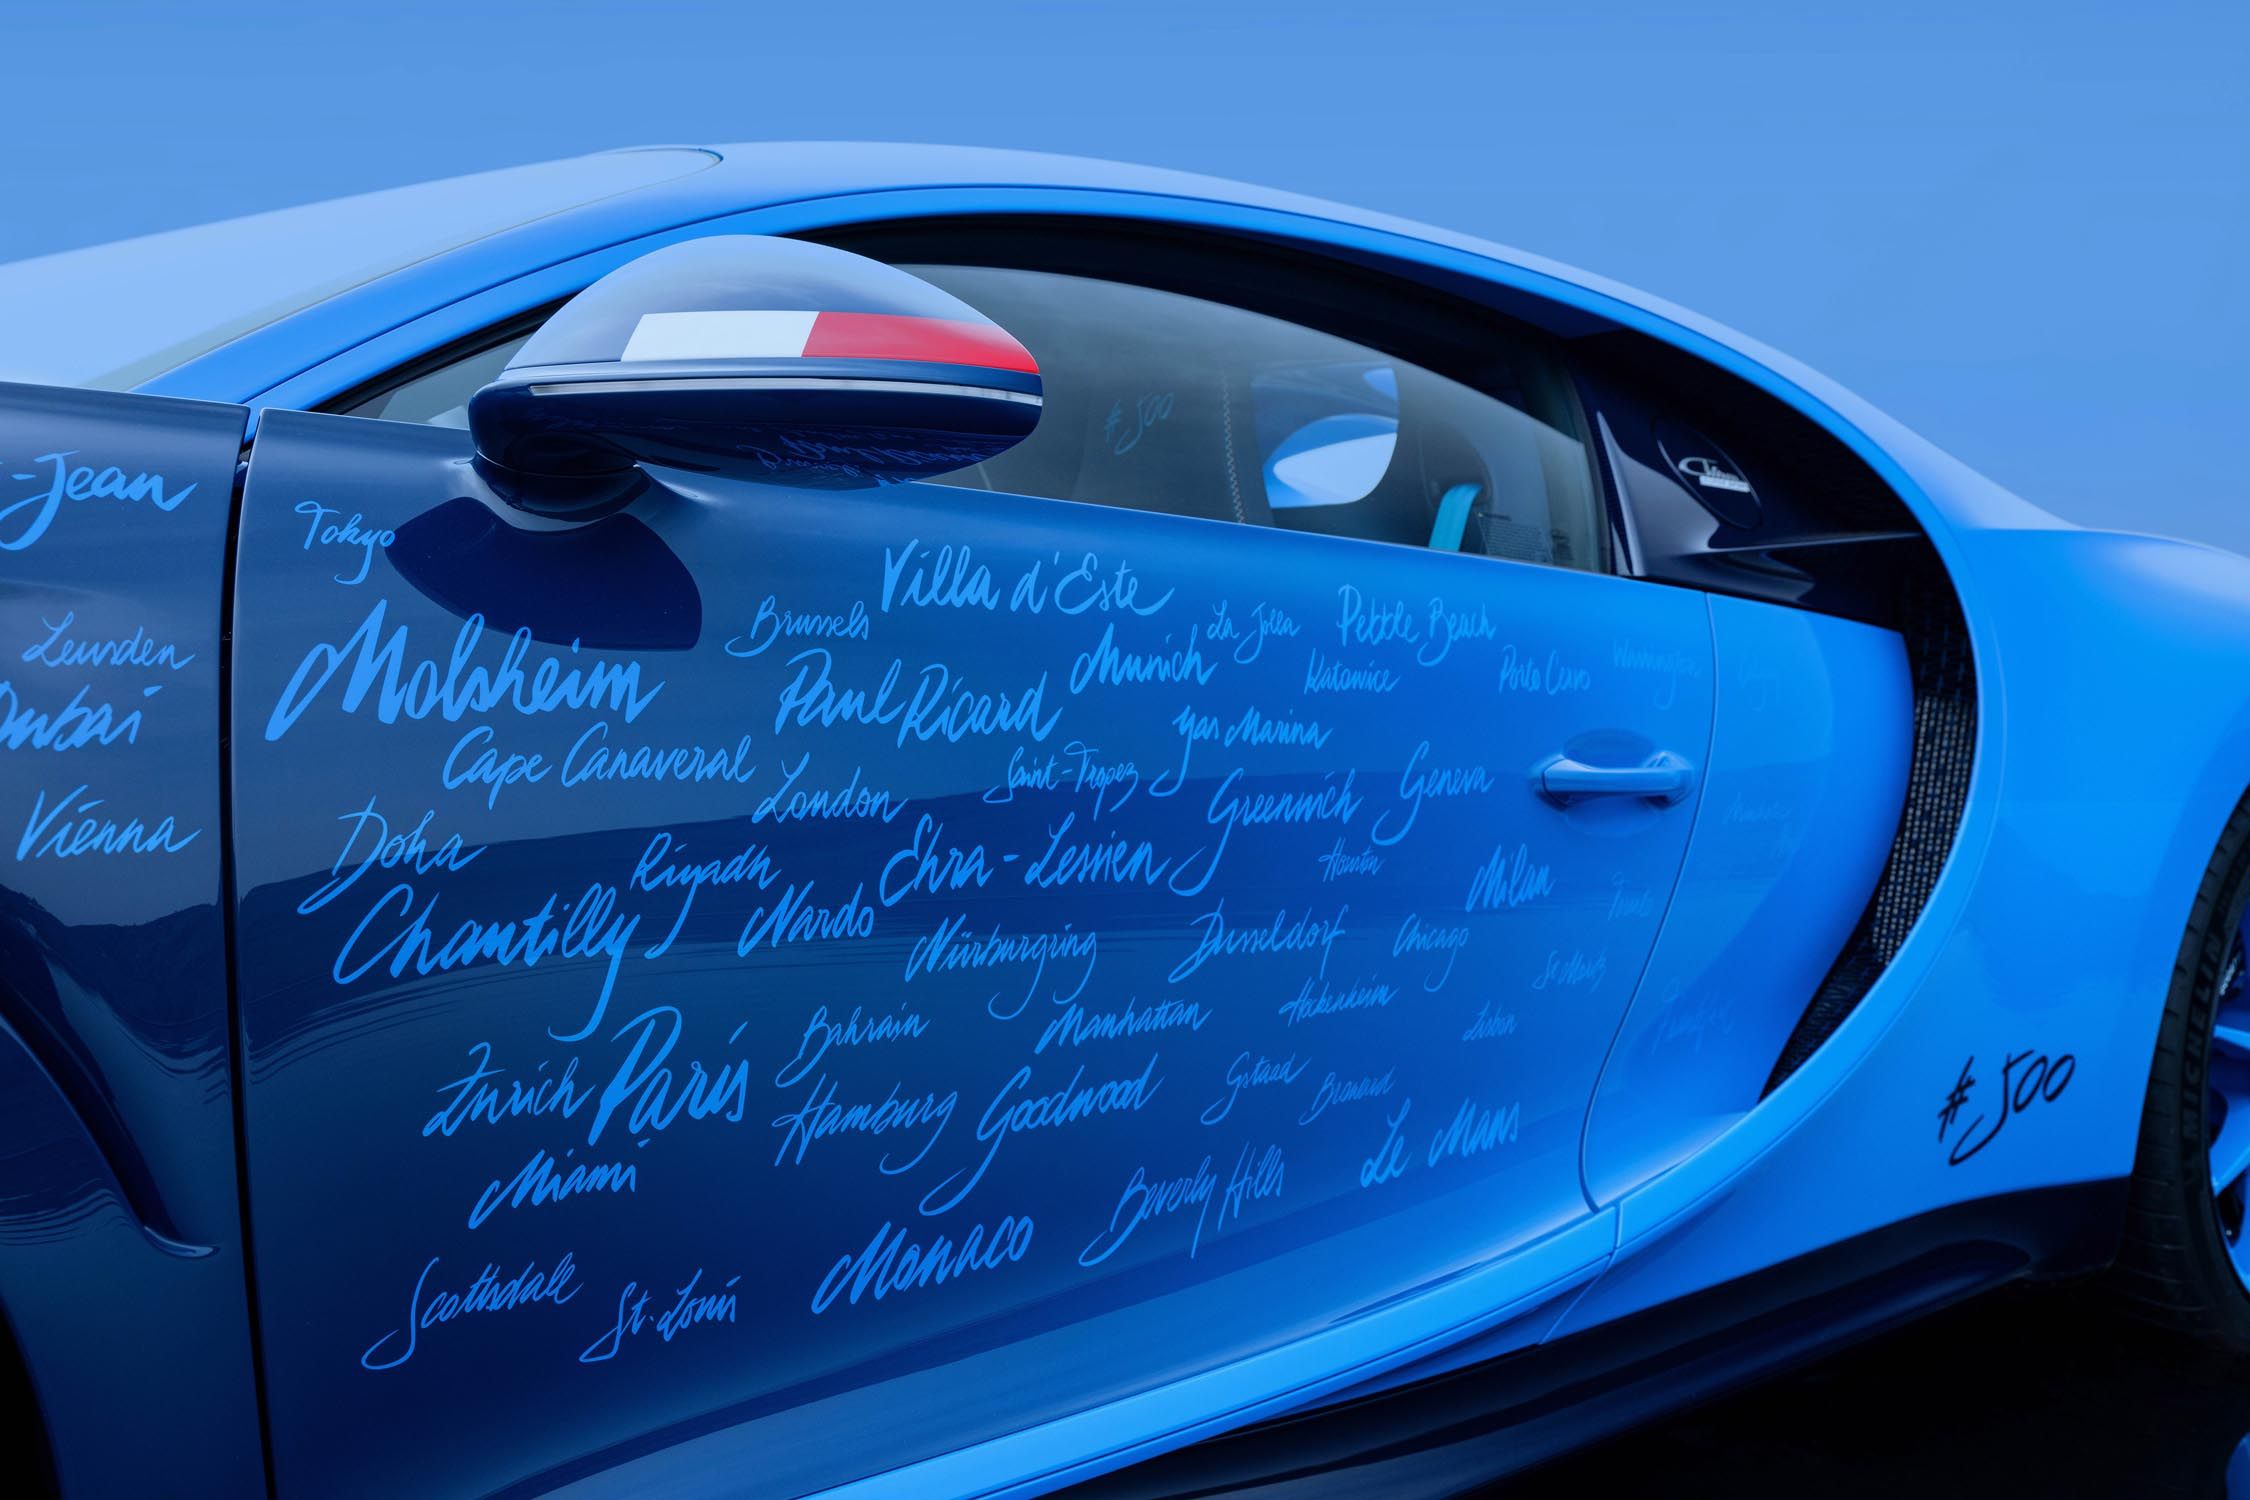 -Jean
Tokyo
Leusden
Dubai
Vienna
Molsheim
Brussels
Villa d'Este
La Jolla
Pebble Beach
Munich
Katowice
Porto Cervo
Warrington
Paul Ricard
Yas Marina
Cape Canaveral
London
Saint-Tropez
Greenwich
Geneva
Doha
Riyadh
Ehra-Lessien
Houston
Milan
Chantilly
Nardo
Nürburgring
Dusseldorf
Chicago
St. Moritz
Zurich
Paris
Bahrain
Manhattan
Hockenheim
Lisbon
Hamburg
Goodwood
Gstaad
Miami
Beverly Hills
Le Mans
Monaco
Scottsdale
St. Louis
#500
#500
MICHELIN